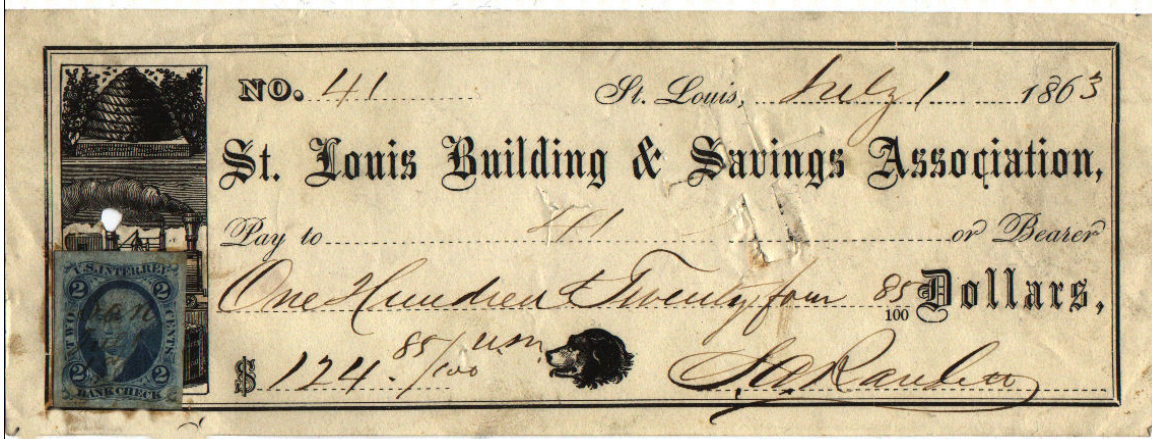 NO. 41 St. Louis, July 1 1863
St. Louis Building & Savings Association,
Pay to 41 or Bearer
One Hundred & Twenty four 85/100 Dollars,
$ 124. 85/100
U.S. INTER. REV.
2 2
TWO CENTS
2 2
BANK CHECK